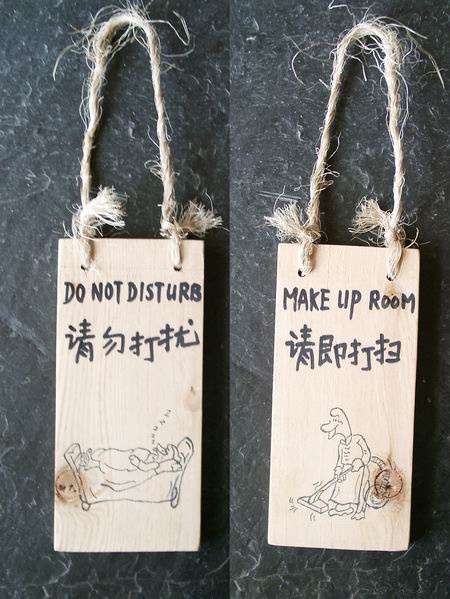 DO NOT DISTURB
请勿打扰
zzzzz
MAKE UP ROOM
请即打扫